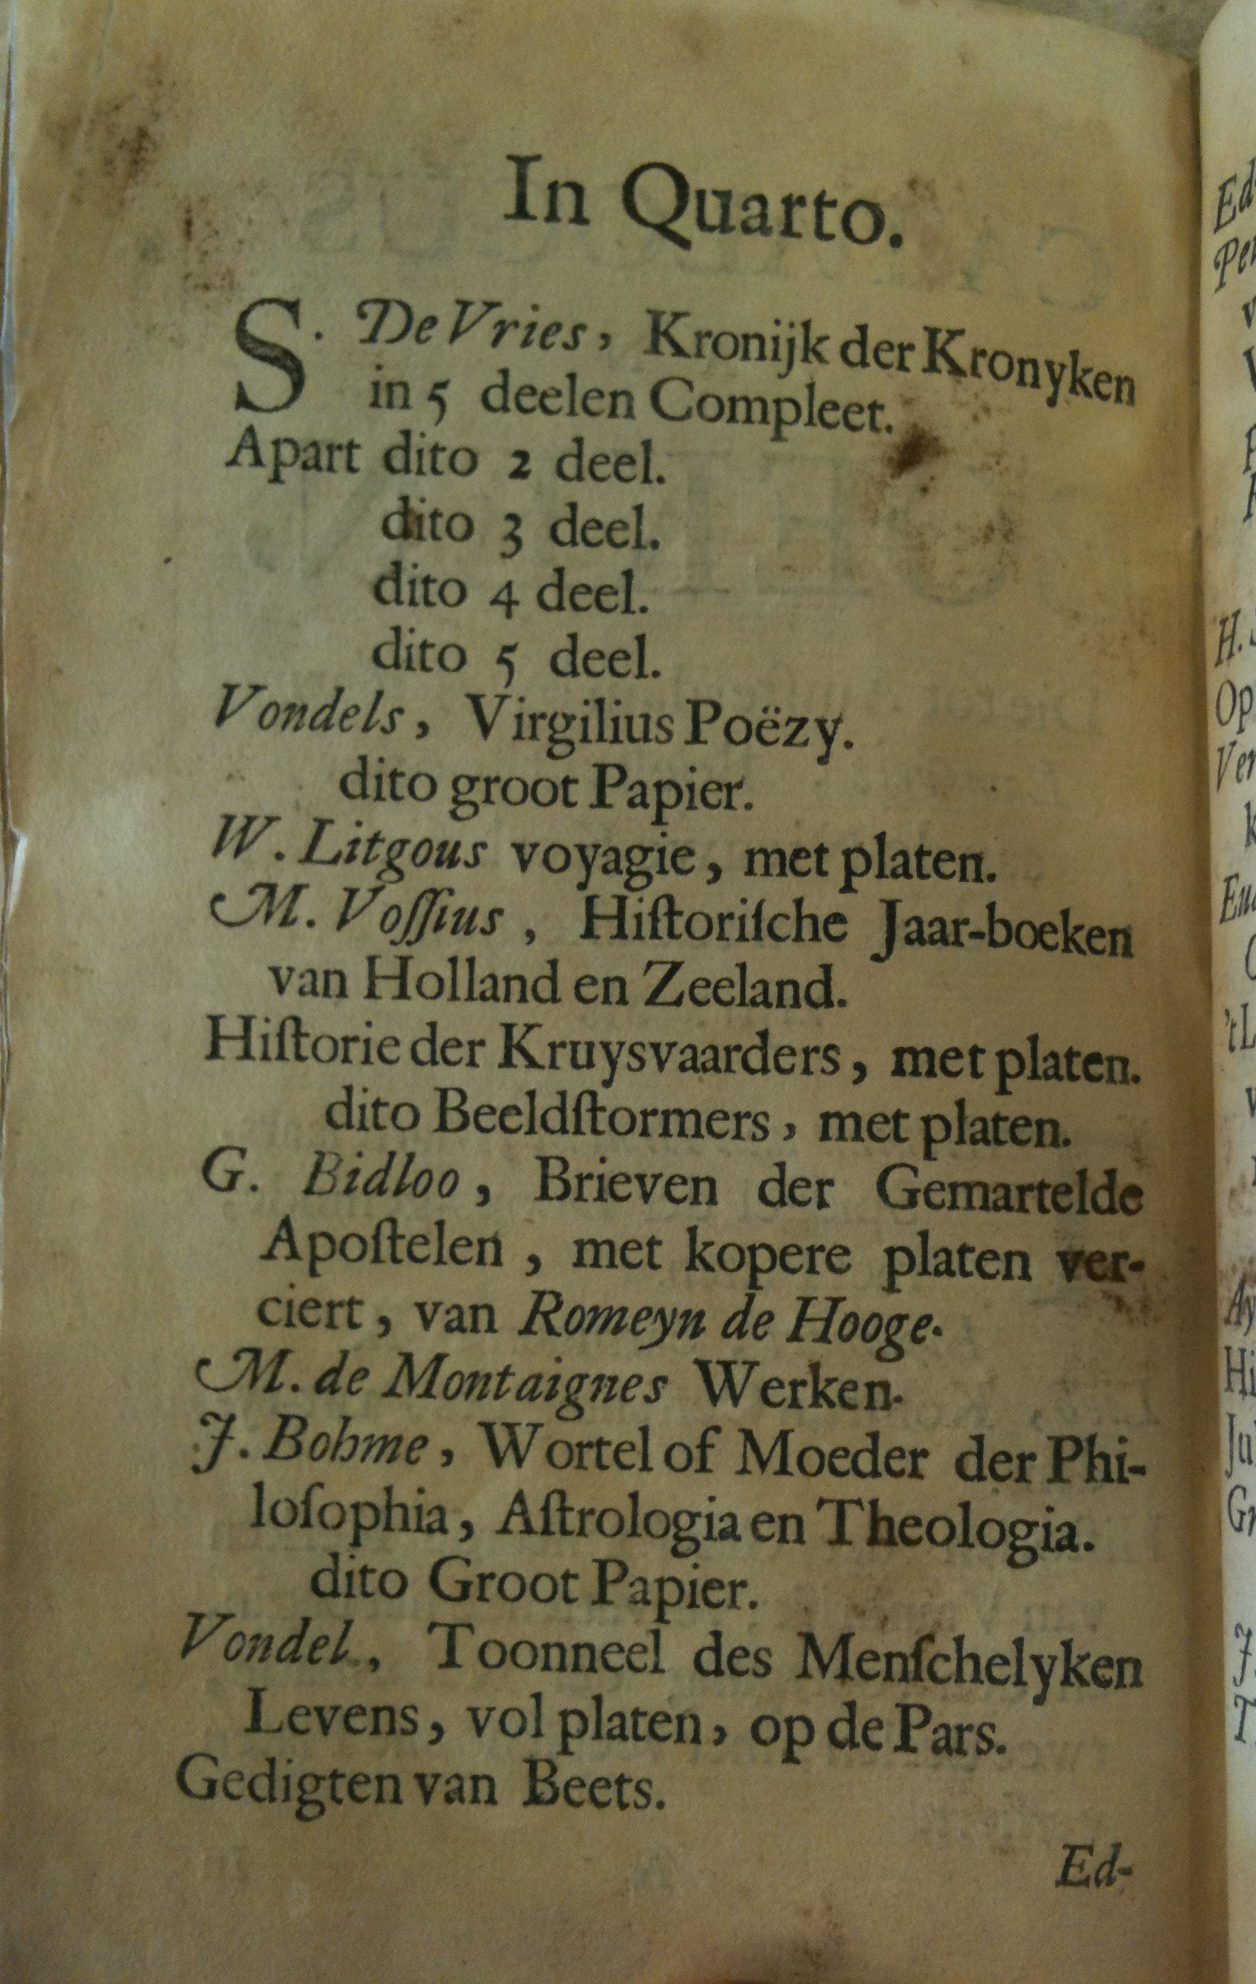 In Quarto.
S. De Vries, Kronijk der Kronyken
in 5 deelen Compleet.
Apart dito 2 deel.
dito 3 deel.
dito 4 deel.
dito 5 deel.
Vondels, Virgilius Poëzy.
dito groot Papier.
W. Litgous voyagie, met platen.
M. Voſſius, Hiſtoriſche Jaar-boeken
van Holland en Zeeland.
Hiſtorie der Kruysvaarders, met platen.
dito Beeldſtormers, met platen.
G. Bidloo, Brieven der Gemartelde
Apoſtelen, met kopere platen ver-
ciert, van Romeyn de Hooge.
M. de Montaignes Werken.
J. Bohme, Wortel of Moeder der Phi-
loſophia, Aſtrologia en Theologia.
dito Groot Papier.
Vondel, Toonneel des Menſchelyken
Levens, vol platen, op de Pars.
Gedigten van Beets.
Ed-